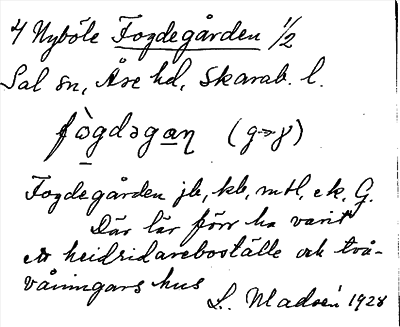 4 Nyböle Fogdegården 1/2
Sal sn, Åse hd, Skarab. l.
fògdəgaṇ (g→γ)
Fogdegården jb, kb, mtl, ek, G.
Där lär förr ha varit
ett heidridareboställe och två-
våningars hus
L. Madsén 1928